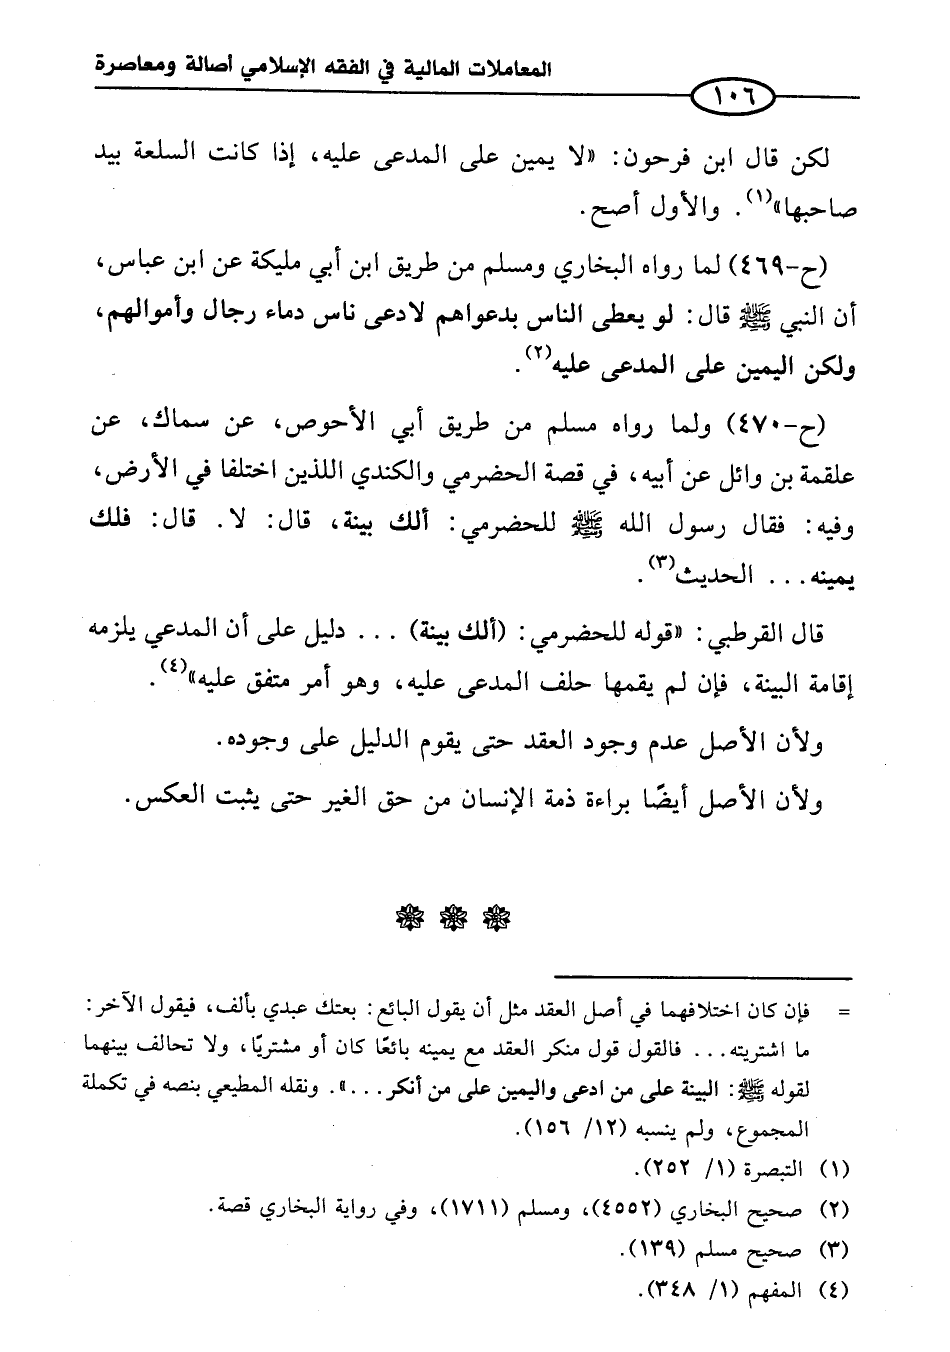 المعاملات المالية في الفقه الإسلامي أصالة ومعاصرة
١٠٦
لكن قال ابن فرحون: «لا يمين على المدعى عليه، إذا كانت السلعة بيد
صاحبها»(١). والأول أصح.
(ح-٤٦٩) لما رواه البخاري ومسلم من طريق ابن أبي مليكة عن ابن عباس،
أن النبي ﷺ قال: لو يعطى الناس بدعواهم لادعى ناس دماء رجال وأموالهم،
ولكن اليمين على المدعى عليه(٢).
(ح-٤٧٠) ولما رواه مسلم من طريق أبي الأحوص، عن سماك، عن
علقمة بن وائل عن أبيه، في قصة الحضرمي والكندي اللذين اختلفا في الأرض،
وفيه: فقال رسول الله ﷺ للحضرمي: ألك بينة، قال: لا. قال: فلك
يمينه... الحديث(٣).
قال القرطبي: «قوله للحضرمي: (ألك بينة) ... دليل على أن المدعي يلزمه
إقامة البينة، فإن لم يقمها حلف المدعى عليه، وهو أمر متفق عليه»(٤).
ولأن الأصل عدم وجود العقد حتى يقوم الدليل على وجوده.
ولأن الأصل أيضًا براءة ذمة الإنسان من حق الغير حتى يثبت العكس.
= فإن كان اختلافهما في أصل العقد مثل أن يقول البائع: بعتك عبدي بألف، فيقول الآخر:
ما اشتريته... فالقول قول منكر العقد مع يمينه بائعًا كان أو مشتريًا، ولا تحالف بينهما
لقوله ﷺ: البينة على من ادعى واليمين على من أنكر...». ونقله المطيعي بنصه في تكملة
المجموع، ولم ينسبه (١٢/ ١٥٦).
(١) التبصرة (١/ ٢٥٢).
(٢) صحيح البخاري (٤٥٥٢)، ومسلم (١٧١١)، وفي رواية البخاري قصة.
(٣) صحيح مسلم (١٣٩).
(٤) المفهم (١/ ٣٤٨).